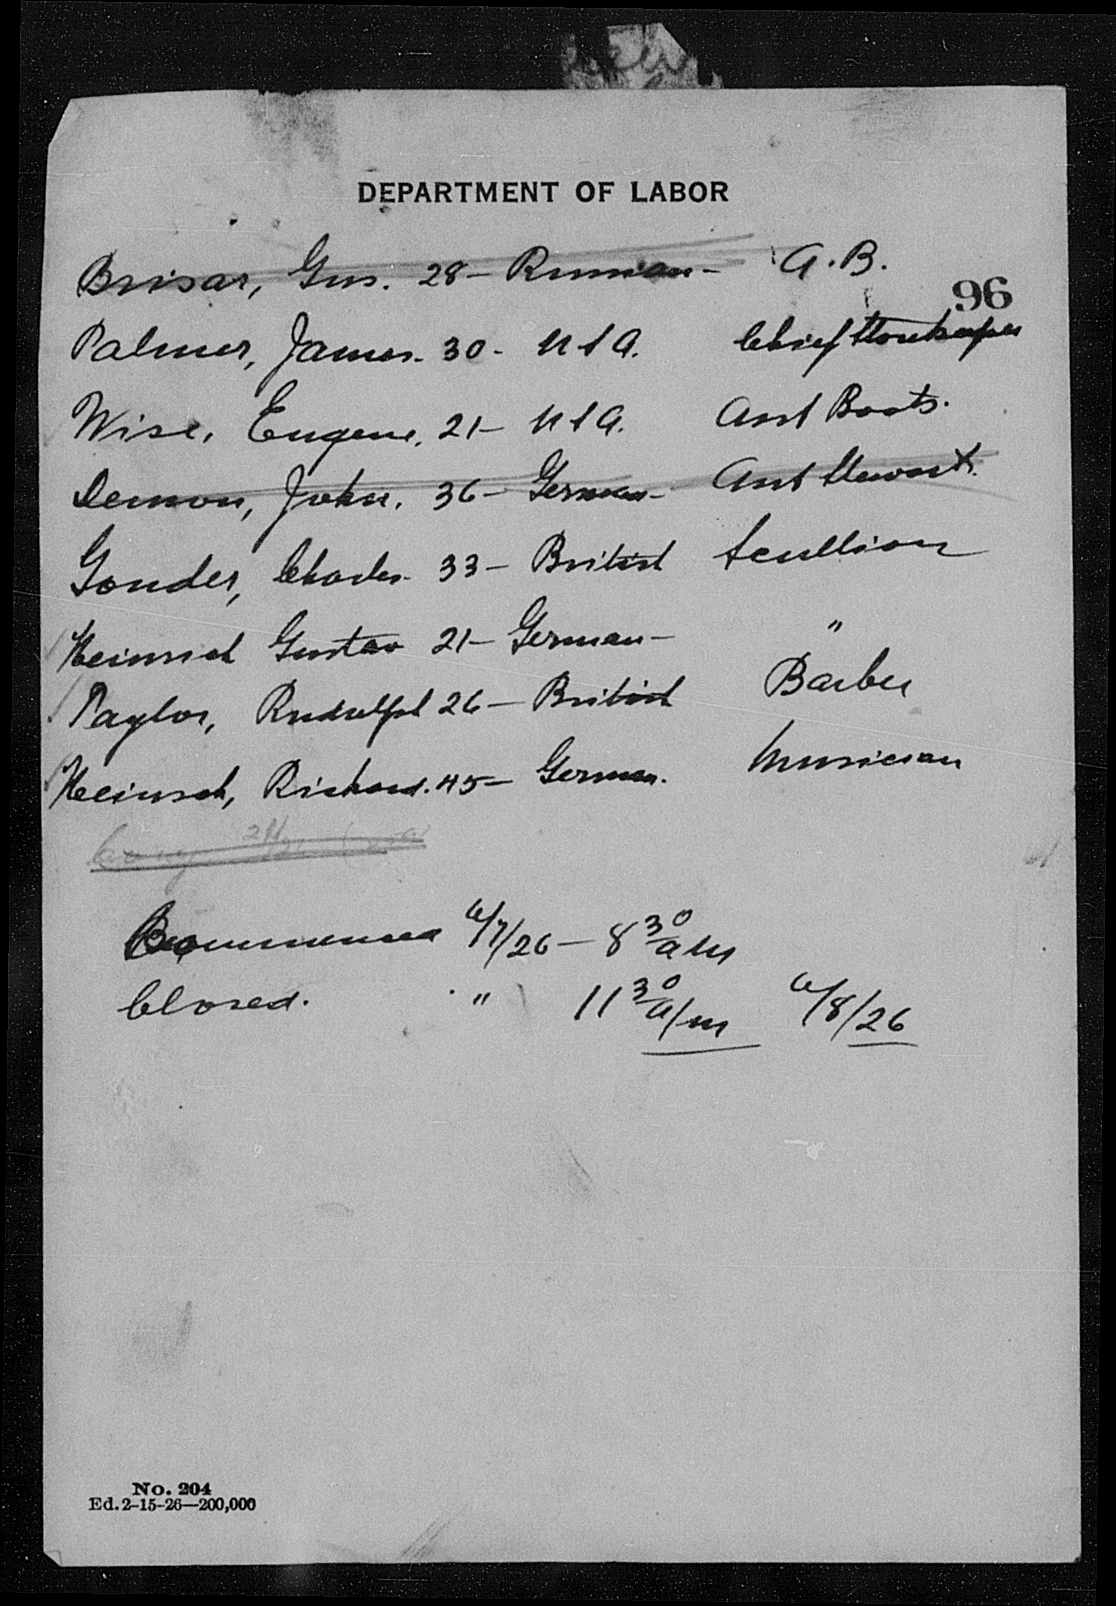 DEPARTMENT OF LABOR
Brisar, Gus. 28 – Russian – A.B.
96
Palmer, James. 30 – U S A. Chief Storekeeper
Wise, Eugene. 21 – U S A. Asst Boots.
Demon, John. 36 – German – Asst Stewart.
Gonder, Charles. 33 – British Scullion
Heinrich Gustav 21 – German – "
Taylor, Rudolph 26 – British Barber
Heinsch, Richard. 45 – German. Musician
Commenced 6/7/26 – 8 30 a m
Closed. " 11 30 a/m 6/8/26
No. 204
Ed. 2-15-26—200,000